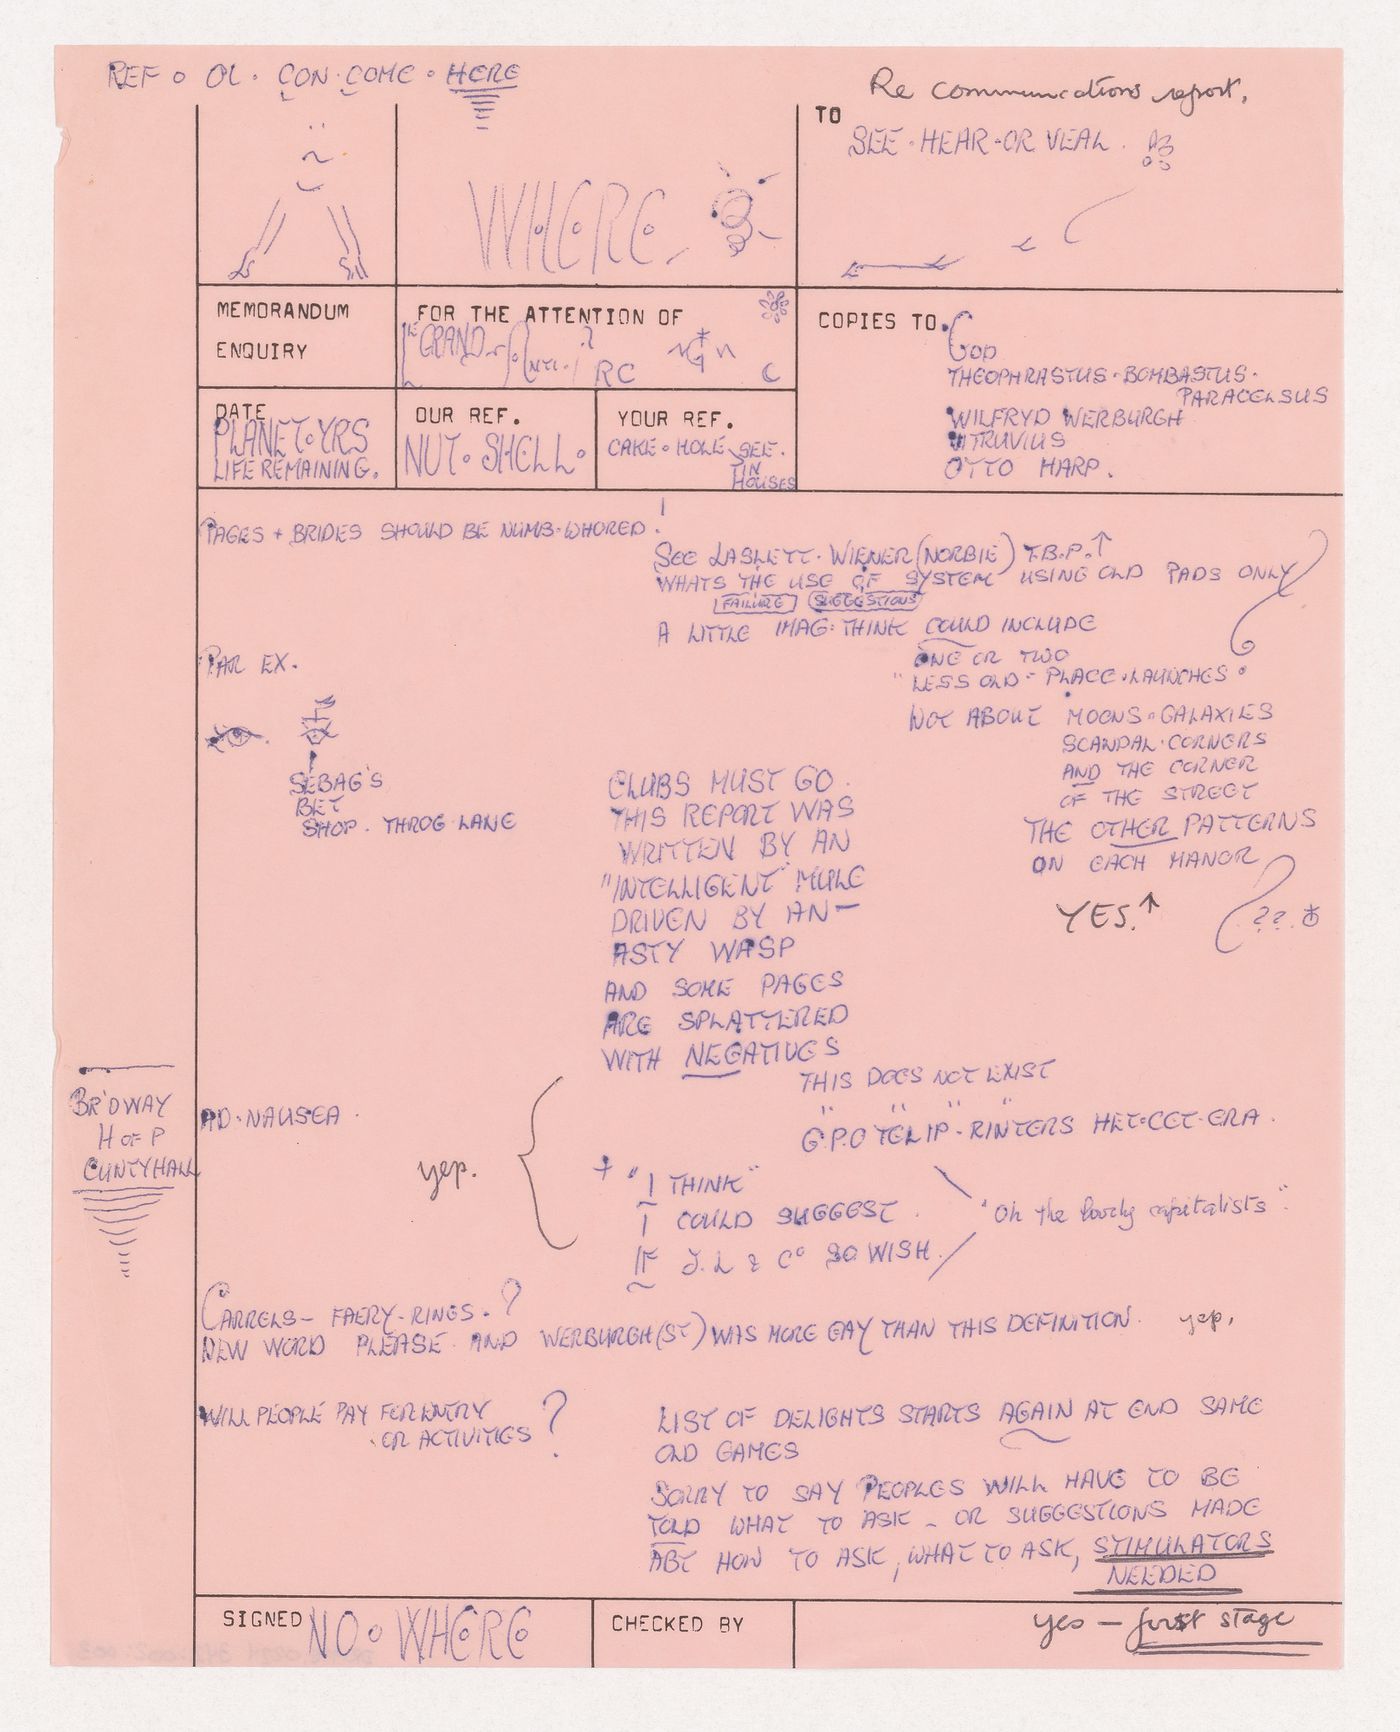 REF o OL. CON.COME. HERE
Re communications report,
TO
SEE.HEAR.OR VEAL.
WHERE
MEMORANDUM
ENQUIRY
FOR THE ATTENTION OF
GRAND
RC
COPIES TO.
GOD
THEOPHRASTUS.BOMBASTUS.
PARACELSUS
WILFRYD WERBURGH
VITRUVIUS
OTTO HARP.
DATE
PLANET.YRS
LIFE REMAINING.
OUR REF.
NUT.SHELL.
YOUR REF.
CAKE.HOLE SEE.
TIN
HOUSES
PAGES + BRIDES SHOULD BE NUMB.WHORED!
SEE LASLETT.WIENER (NORBIE) T.B.P.↑
WHATS THE USE OF SYSTEM USING OLD PADS ONLY
FAILURE SUGGESTIONS
A LITTLE IMAG.THINK COULD INCLUDE
ONE OR TWO
"LESS OLD" PLACE.LAUNCHES.
NOT ABOUT MOONS.GALAXIES
SCANDAL.CORNERS
AND THE CORNER
OF THE STREET
THE OTHER PATTERNS
ON EACH MANOR
YES.↑
??.
PAR EX.
SEBAG'S
BET
SHOP. THROG LANE
CLUBS MUST GO.
THIS REPORT WAS
WRITTEN BY AN
"INTELLIGENT" MULE
DRIVEN BY AN-
ASTY WASP
AND SOME PAGES
ARE SPLATTERED
WITH NEGATIVES
THIS DOES NOT EXIST
BR'DWAY
H OF P
CUNTYHALL
AD.NAUSEA.
G.P.O TELIP-RINTERS HET.CET.ERA.
yep.
+ "I THINK"
I COULD SUGGEST.
IF J.L & Co SO WISH.
"Oh the lovely capitalists".
CARRELS - FAERY-RINGS.?
NEW WORD PLEASE. AND WERBURGH(ST) WAS MORE GAY THAN THIS DEFINITION. yep,
WILL PEOPLE PAY FOR ENTRY
OR ACTIVITIES?
LIST OF DELIGHTS STARTS AGAIN AT END SAME
OLD GAMES
SORRY TO SAY PEOPLES WILL HAVE TO BE
TOLD WHAT TO ASK - OR SUGGESTIONS MADE
ABT HOW TO ASK, WHAT TO ASK, STIMULATORS
NEEDED
SIGNED NO.WHERE
CHECKED BY
yes - first stage